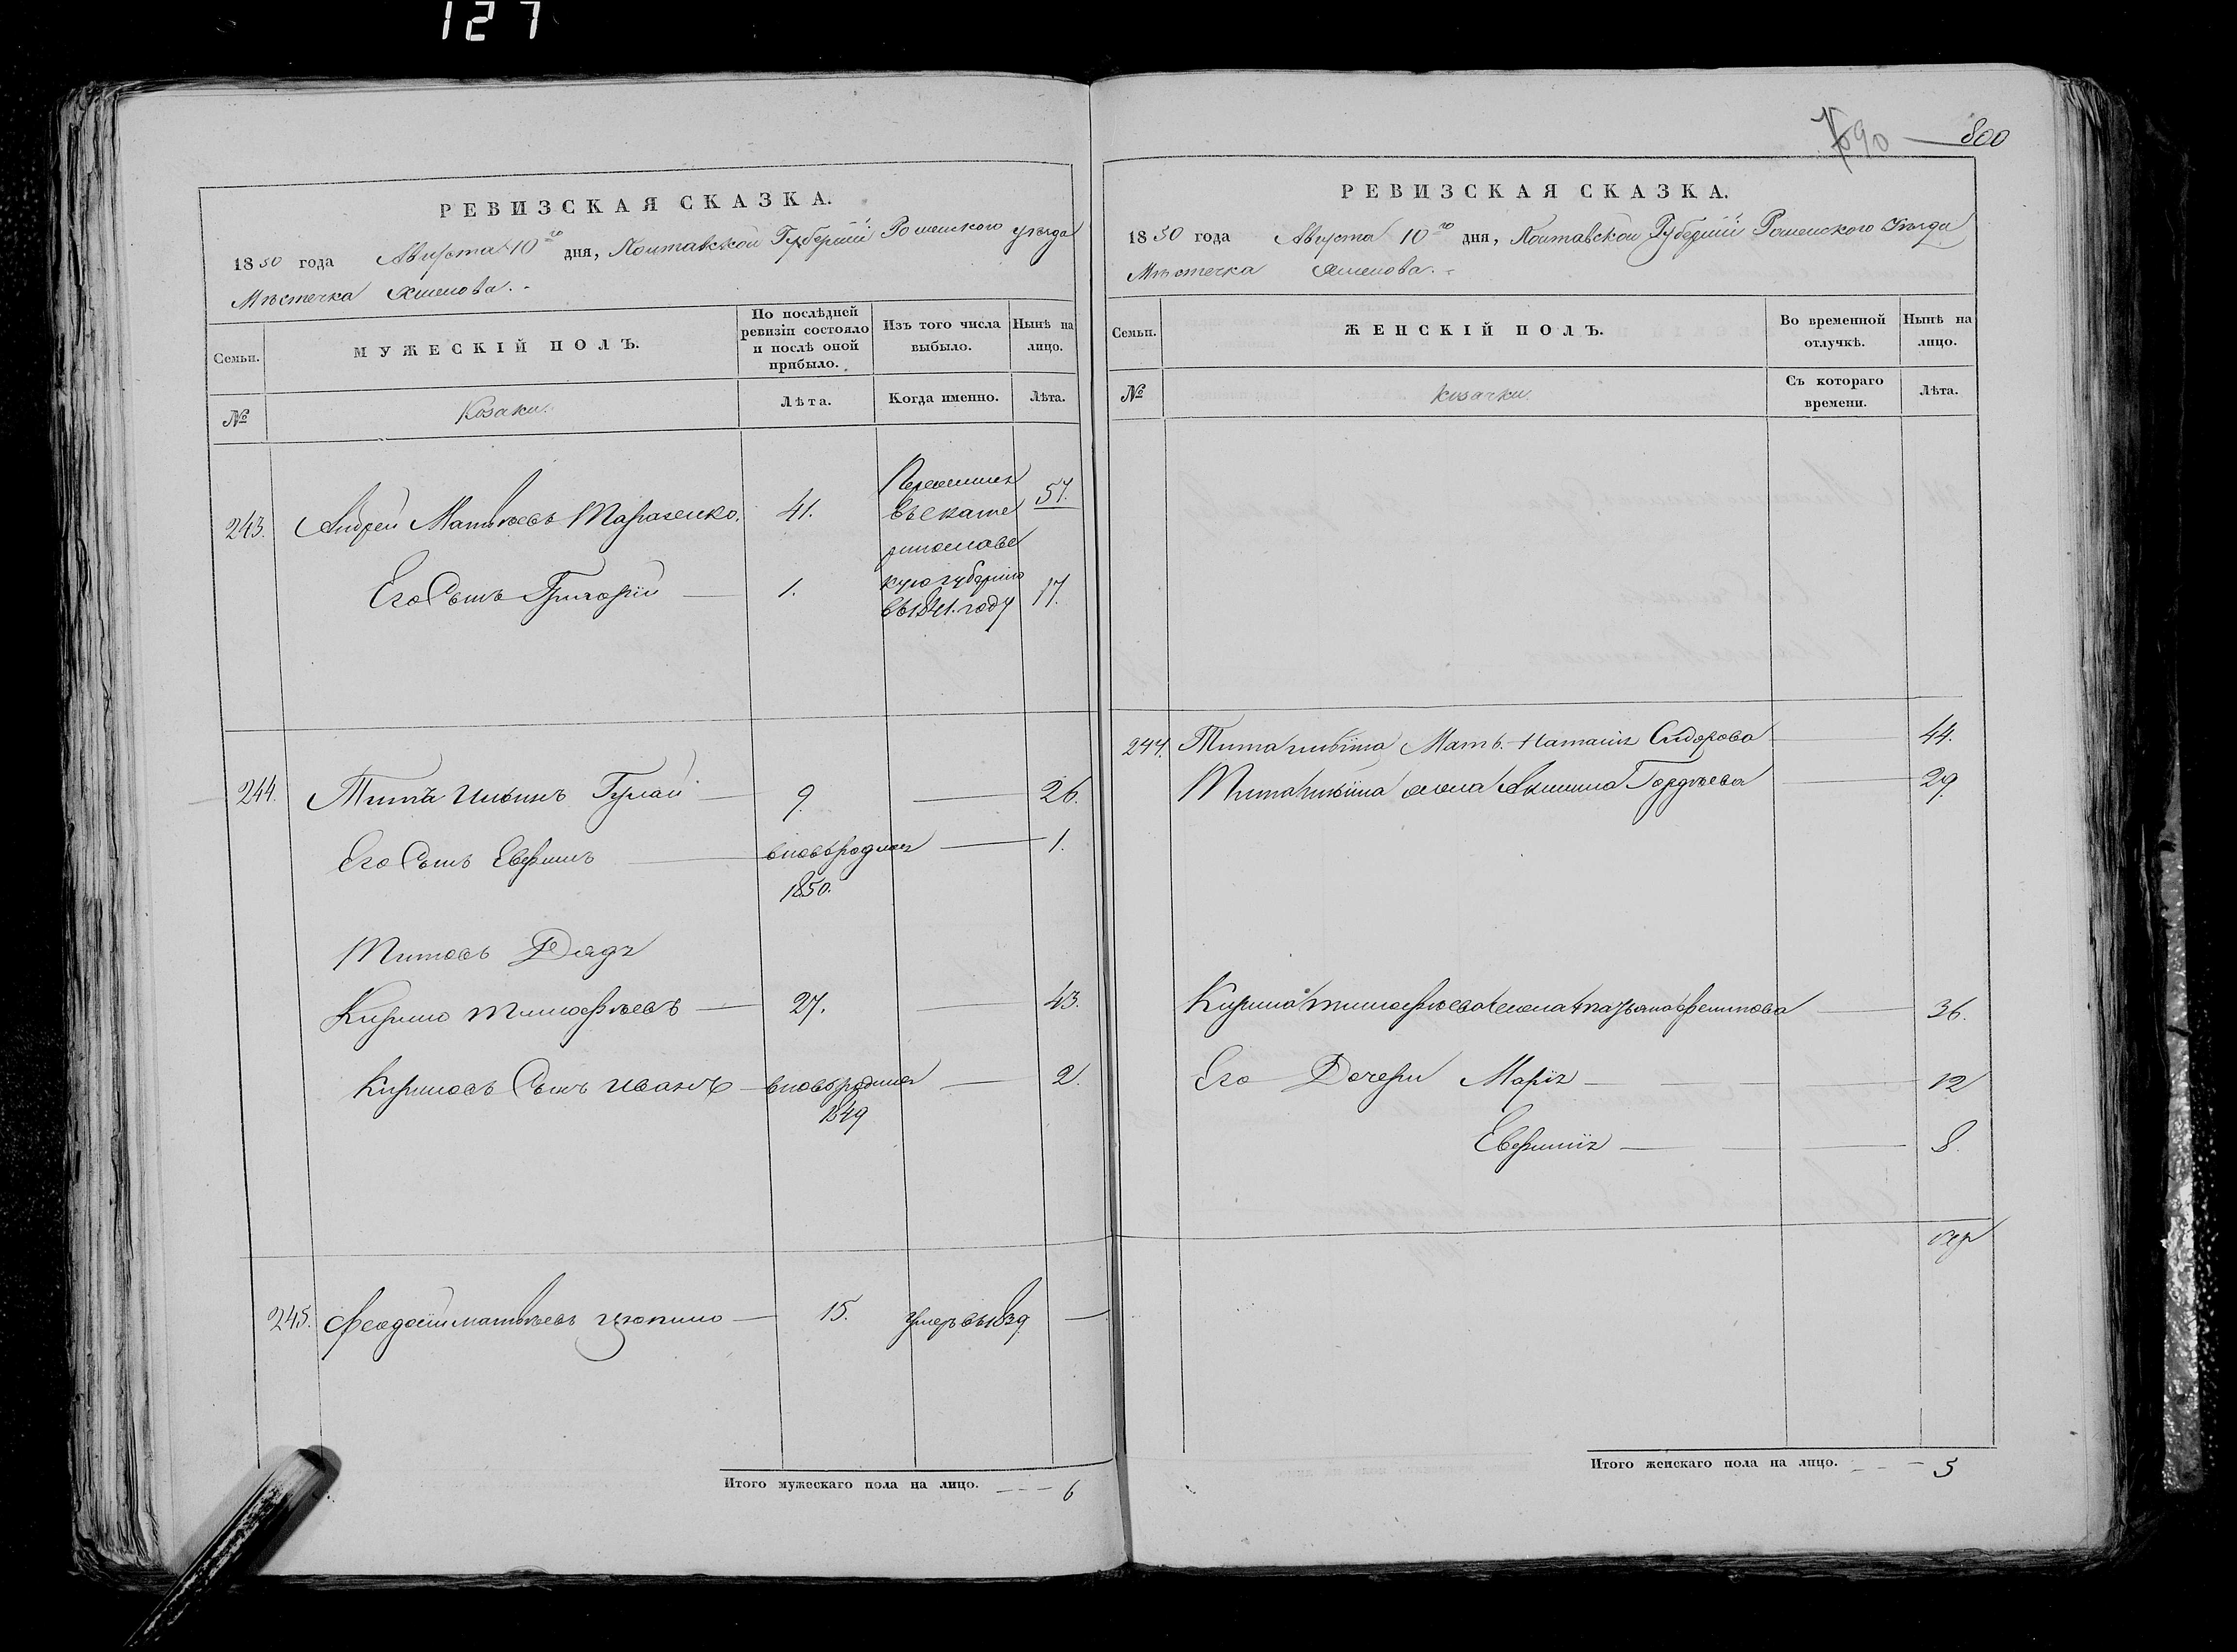 127
800
РЕВИЗСКАЯ СКАЗКА.
1850 года Августа 10го дня, Полтавской Губерніи Роменского уѣзда
Мѣстечка
Семьи.
МУЖЕСКІЙ ПОЛЪ.
По послѣдней ревизіи состояло и послѣ оной прибыло.
Изъ того числа выбыло.
Нынѣ на лицо.
№
Козаки.
Лѣта.
Когда именно.
Лѣта.
243. Андрей Матвѣевъ Тарасенко. 41. 57.
въ Екате
ринославс
кую губернію
въ 1841. году
Его Сынъ Григорій 1. 17.
244. Титъ Ильинъ Гулай 9. 26.
Его Сынъ вновьрожден 1.
1850.
Титовъ Дядя
Кирило Тимофѣевъ 27. 43.
Кириловъ Сынъ Иванъ вновьрожден 2.
1849
245. Феодосій Матвѣевъ 15. умеръ въ 1839
Итого мужескаго пола на лицо. 6
РЕВИЗСКАЯ СКАЗКА.
1850 года Августа 10го дня, Полтавской Губерніи Роменского Уѣзда
Мѣстечка
Семьи.
ЖЕНСКІЙ ПОЛЪ.
Во временной отлучкѣ.
Нынѣ на лицо.
№
Козачки.
Съ котораго времени.
Лѣта.
244. Тита Ильина Мать Наталія Сидорова 44.
Тита Ильина жена Акилина Гордѣева 29.
Кирила Тимофѣева жена 36.
Его Дочери Марія 12
8.
Итого женскаго пола на лицо. 5